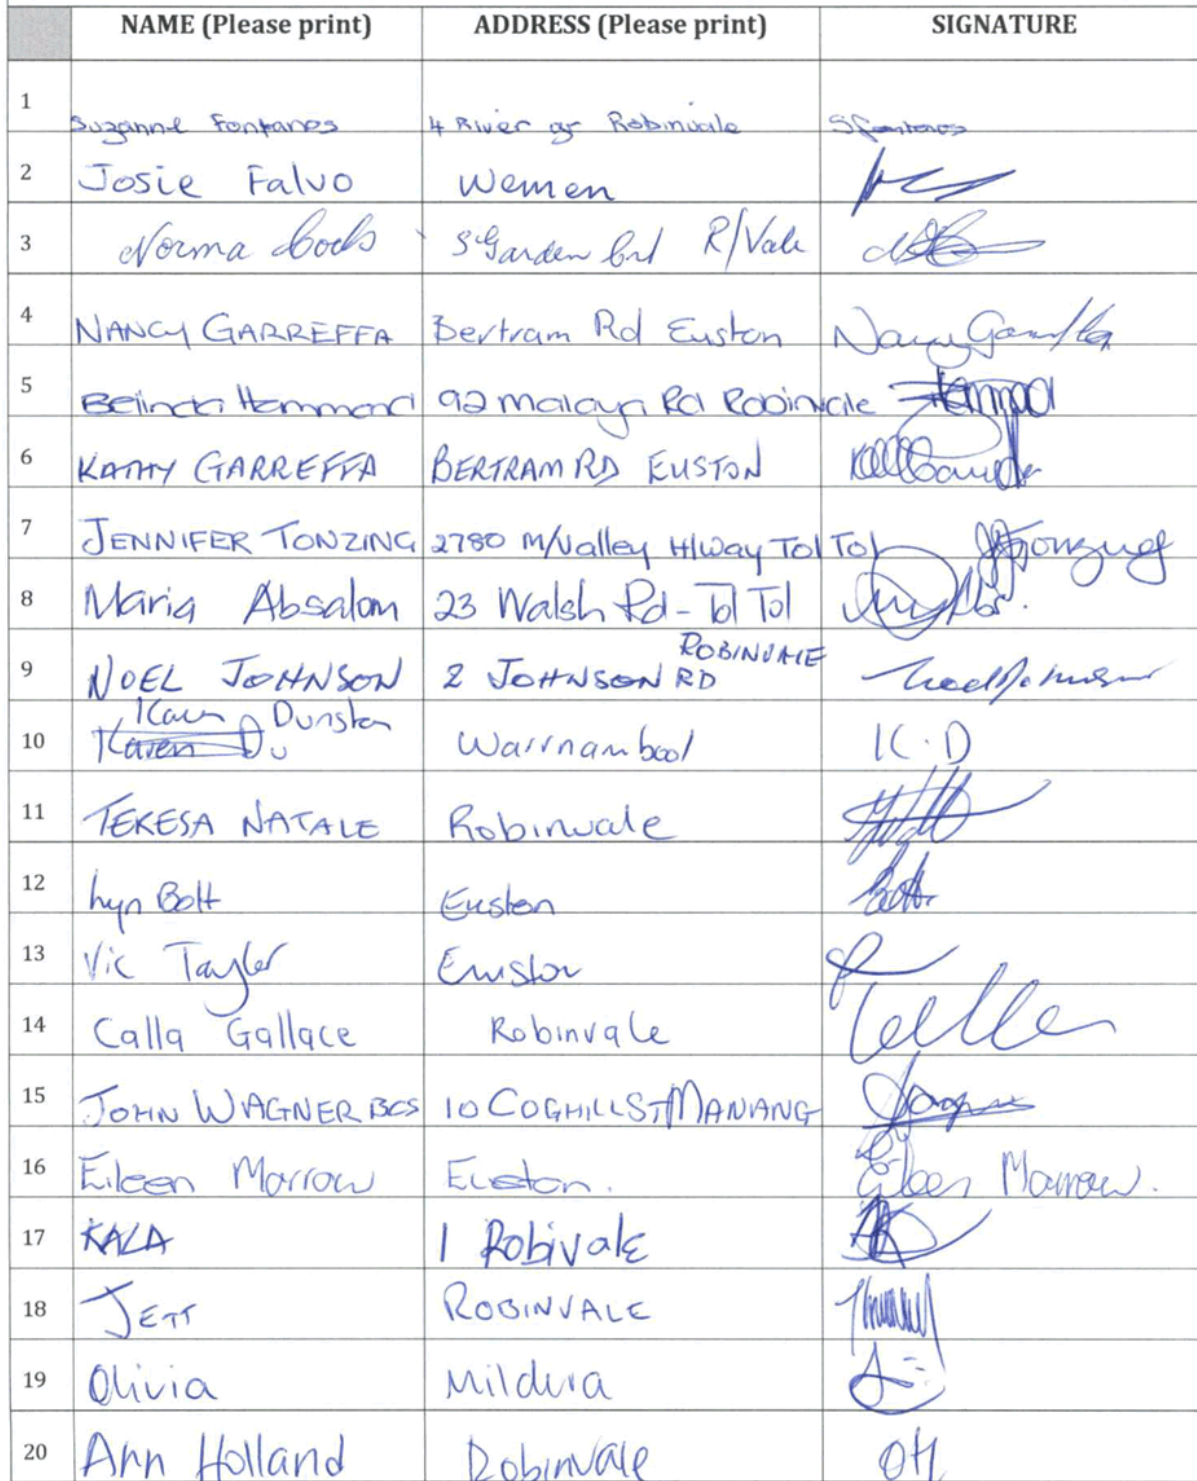 NAME (Please print) ADDRESS (Please print) SIGNATURE
1 Suzanne Fontanes 4 River gr Robinvale SFontanes
2 Josie Falvo Wemen
3 Norma 5 Garden R/Vale
4 NANCY GARREFFA Bertram Rd Euston Nancy Garreffa
5 Belinda Hammond 92 malaya Rd Robinvale Hammond
6 KATHY GARREFFA BERTRAM RD EUSTON
7 JENNIFER TONZING 2780 M/Valley H/Way Tol Tol
8 Maria Absalom 23 Walsh Rd - Tol Tol
9 NOEL JOHNSON 2 JOHNSON RD ROBINVALE Noel Johnson
10 Karen Du Karen Dunstan Warrnambool K.D
11 TERESA NATALE Robinvale
12 Lyn Bolt Euston Bolt
13 Vic Tayler Euston
14 Calla Gallace Robinvale
15 JOHN WAGNER BCS 10 COGHILL ST MANANG
16 Eileen Morrow Euston. Eileen Morrow.
17 KALA 1 Robivale
18 JETT ROBINVALE
19 Olivia Mildura
20 Ann Holland Robinvale